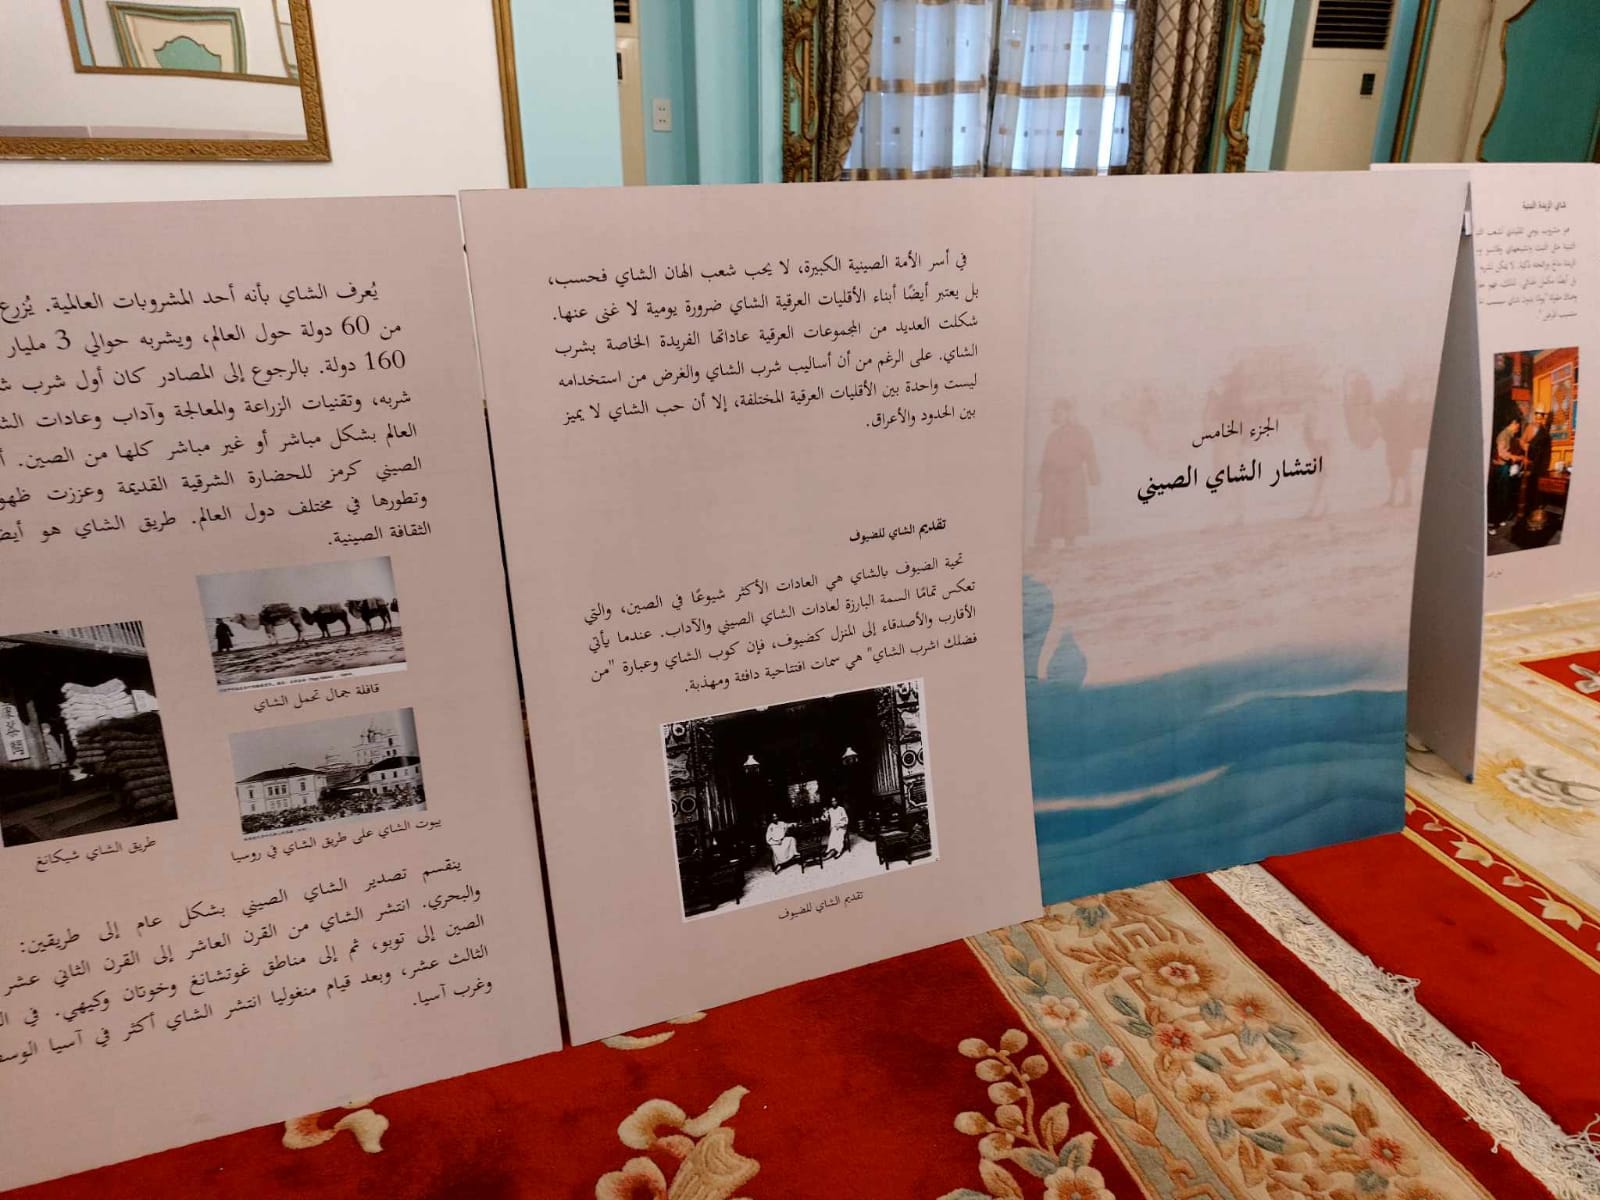 الجزء الخامس
انتشار الشاي الصيني
في أسر الأمة الصينية الكبيرة، لا يحب شعب الهان الشاي فحسب،
بل يعتبر أيضًا أبناء الأقليات العرقية الشاي ضرورة يومية لا غنى عنها.
شكلت العديد من المجموعات العرقية عاداتها الفريدة الخاصة بشرب
الشاي. على الرغم من أن أساليب شرب الشاي والغرض من استخدامه
ليست واحدة بين الأقليات العرقية المختلفة، إلا أن حب الشاي لا يميز
بين الحدود والأعراق.
تقديم الشاي للضيوف
تحية الضيوف بالشاي هي العادات الأكثر شيوعًا في الصين، والتي
تعكس تمامًا السمة البارزة لعادات الشاي الصيني والآداب. عندما يأتي
الأقارب والأصدقاء إلى المنزل كضيوف، فإن كوب الشاي وعبارة "من
فضلك اشرب الشاي" هي سمات افتتاحية دافئة ومهذبة.
تقديم الشاي للضيوف
يُعرف الشاي بأنه أحد المشروبات العالمية. يُزرع
من 60 دولة حول العالم، ويشربه حوالي 3 مليار
160 دولة. بالرجوع إلى المصادر كان أول شرب
شربه، وتقنيات الزراعة والمعالجة وآداب وعادات
العالم بشكل مباشر أو غير مباشر كلها من الصين.
الصيني كرمز للحضارة الشرقية القديمة وعززت
وتطورها في مختلف دول العالم. طريق الشاي هو
الثقافة الصينية.
قافلة جمال تحمل الشاي
طريق الشاي شيكانغ
بيوت الشاي على طريق الشاي في روسيا
ينقسم تصدير الشاي الصيني بشكل عام إلى طريقين:
والبحري. انتشر الشاي من القرن العاشر إلى القرن الثاني عشر
الصين إلى توبو، ثم إلى مناطق غوتشانغ وخوتان وكيهي. في
الثالث عشر، وبعد قيام منغوليا انتشر الشاي أكثر في آسيا
وغرب آسيا.
شاي الزبدة التبتية